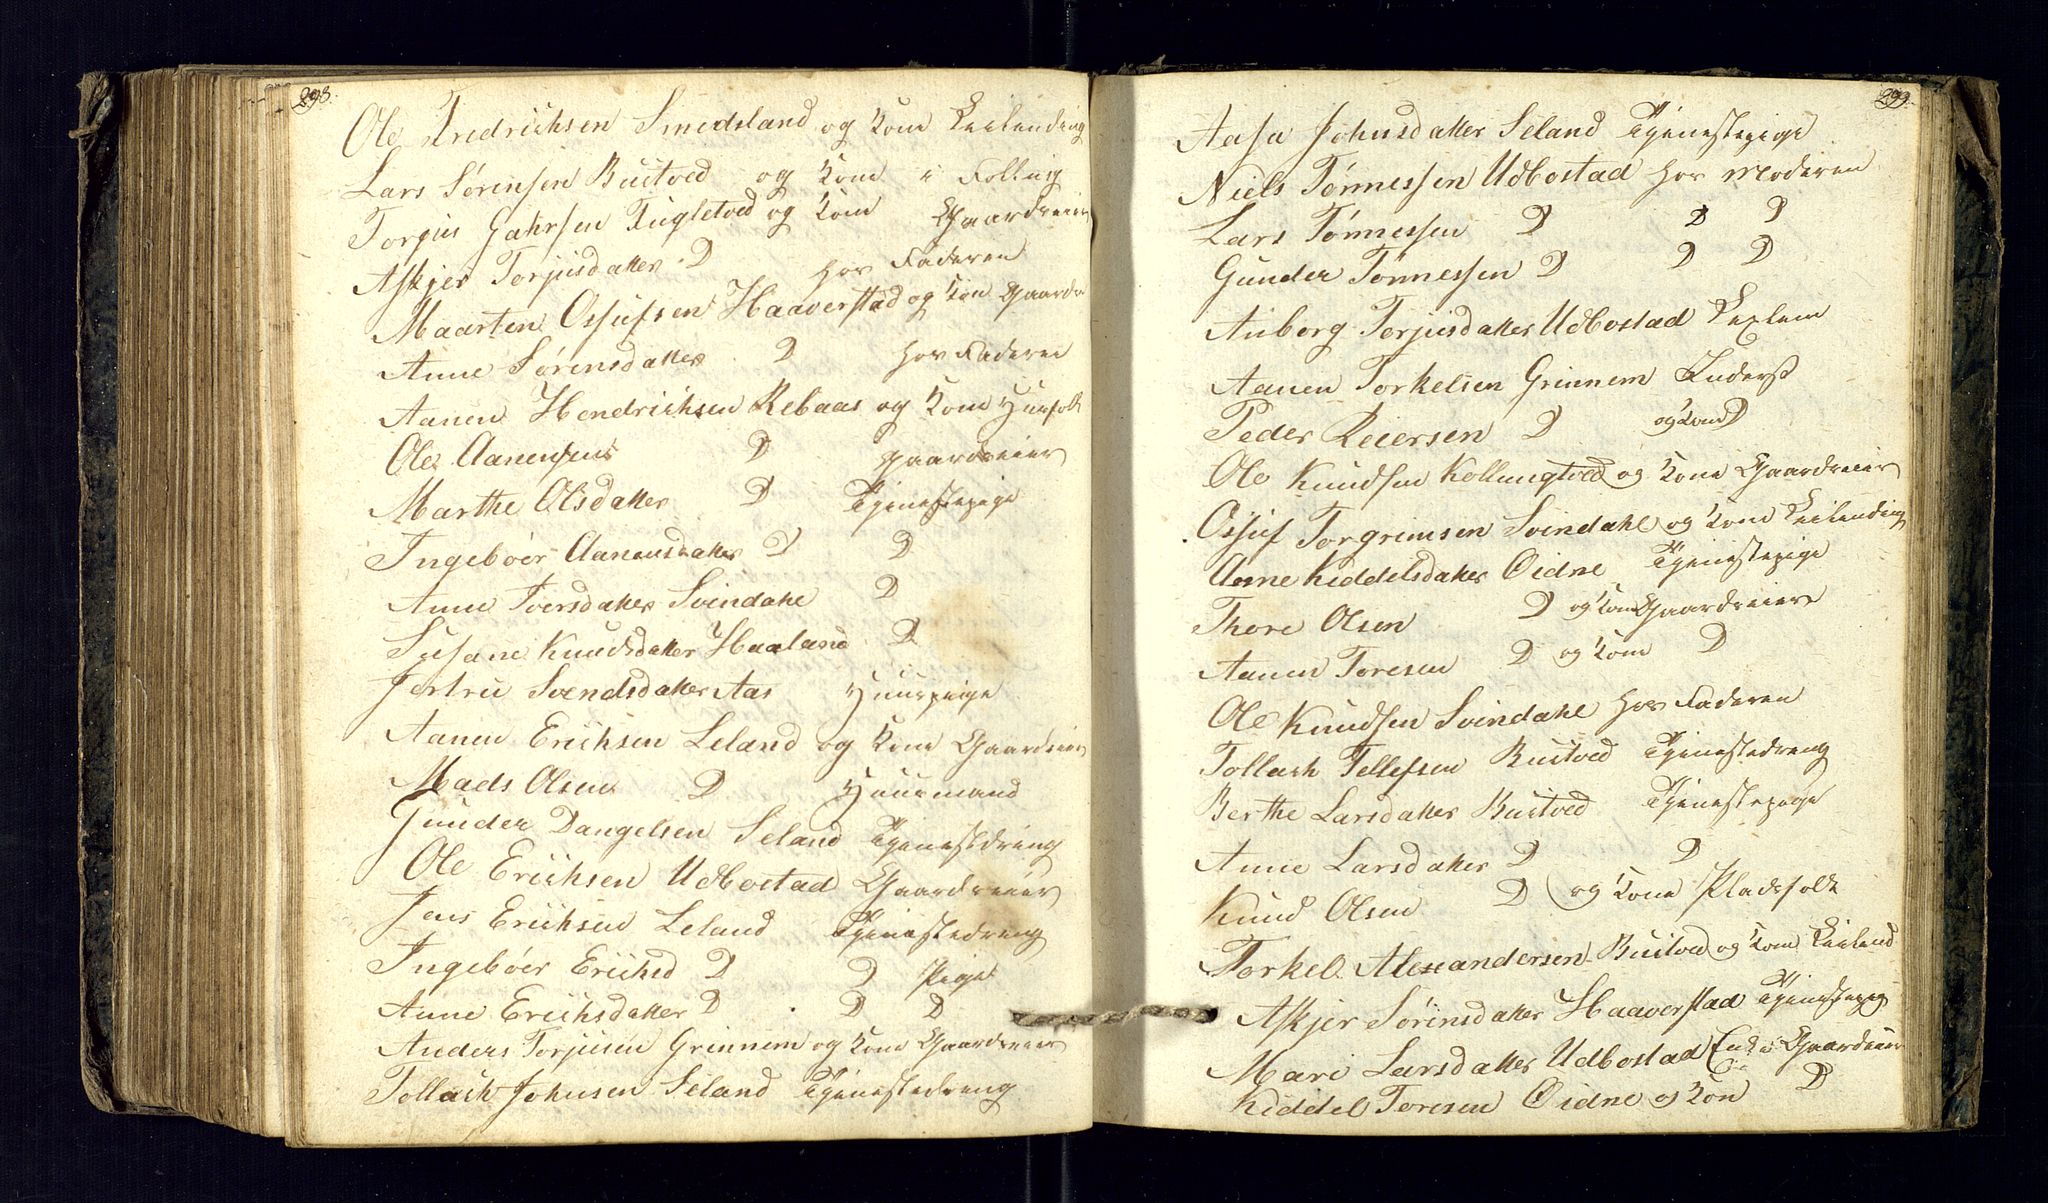 298.
Ole Fredrichsen Smedsland og Kone Leilending
Lars Sørensen Bustved og Kone i Follug
Torgius Gahrsen Fugletved og Kone Gaardeier
Askjer Torjusdatter D hos Faderen
Maarten Ossufsen Haaverstad og Kone Gaarde
Anne Sørensdatter D hos Faderen
Aanen Hendrichsen Rebaas og Kone Huusfolk
Ole Aanensens D Gaardeier
Marthe Olsdatter D Tjenestepige
Ingebøer Aanensdatter D D
Anne Toersdatter Svindahl D
Susane Knudsdatter Haaland D
Jertru Svendsdatter Aas Huuspige
Aanen Erichsen Leland og Kone Gaardeier
Mads Olsen D Huusmand
Gunder Dangelsen Seland Tjenestdreng
Ole Erichsen Udbostad Gaardeier
Jens Erichsen Leland Tjenestedreng
Ingebøer Erichsd D D Pige
Anne Erichsdatter D D D
Anders Torjusen Grinnem og Kone Gaardeier
Tollach Johnsen Seland Tjenestedreng
299.
Aasa Johnsdatter Seland Tjenestepige
Niels Tønnessen Udbostad hos Moderen
Lars Tønnessen D D D
Gunder Tønnessen D D D
Anborg Torjusdatter Udbostad
Aanen Torkelsen Grinnem Inderst
Peder Reiersen D og Kone D
Ole Knudsen Kollungtved og Kone Gaardeier
Ossuf Torgrimsen Svindahl og Kone Leilending
Anne Kiddelsdatter Oidne Tjenestepige
Thore Olsen D og Kone Gaardeier
Aanen Toresen D og Kone D
Ole Knudsen Svindahl hos Faderen
Tollach Tellefsen Bustved Tjenestedreng
Berthe Larsdatter Bustved Tjenestepige
Anne Larsdatter D D
Knud Olsen D og Kone Pladsfolk
Torkel Alexandersen Bustved og Kone Leilend
Askjer Sørensdatter Haaverstad Tjenestepig
Mari Larsdatter Udbostad Enke Gaardeier
Kiddel Toresen Oidne og Kon D